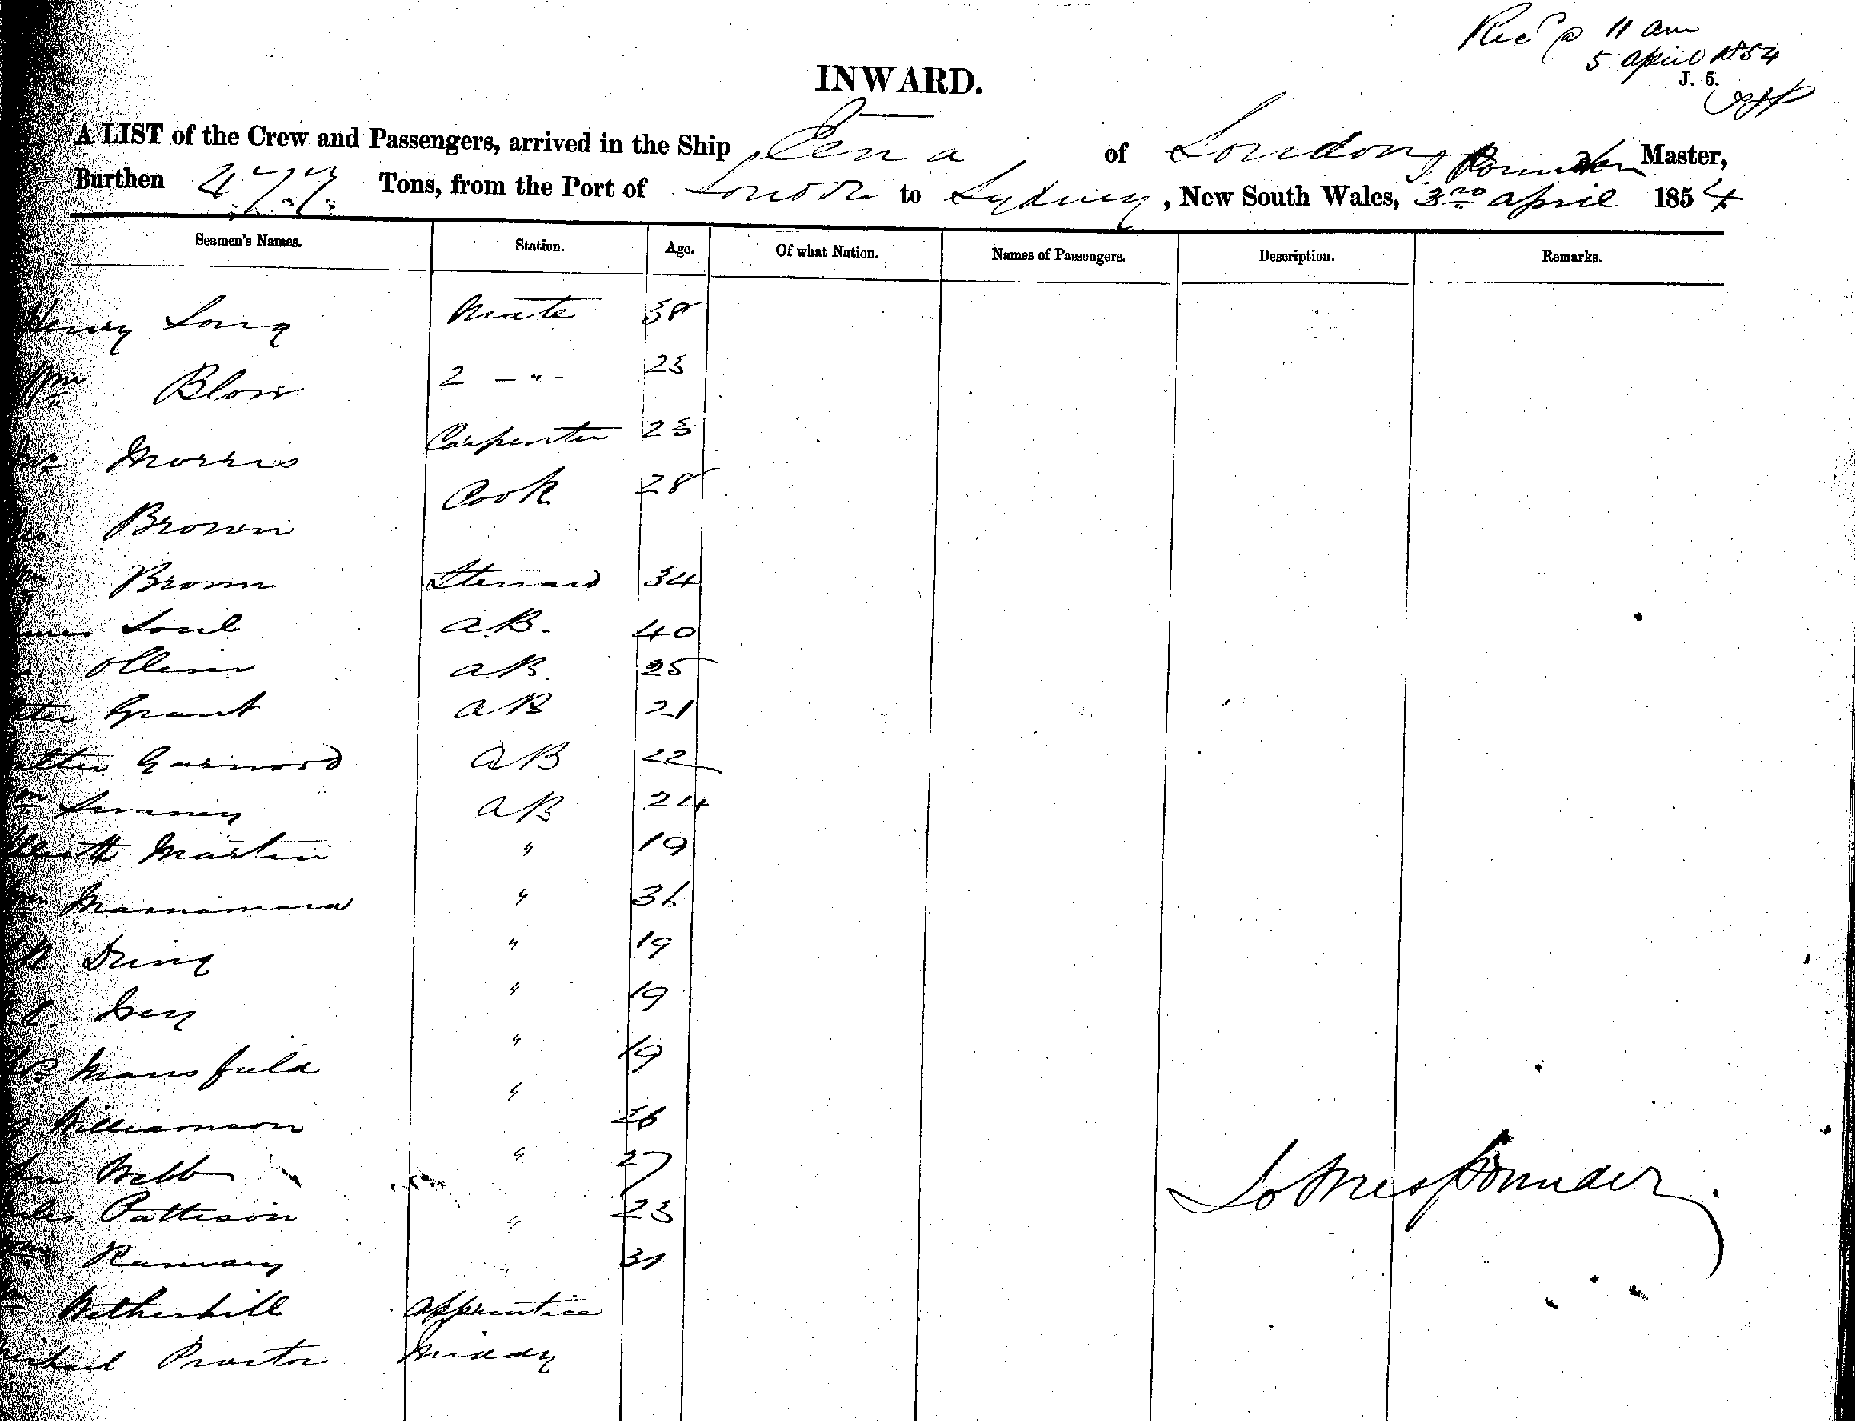 Recd @ 11 am
5 April 1854
J. 5.
INWARD.
A LIST of the Crew and Passengers, arrived in the Ship of London, J Pounder Master,
Burthen 477 Tons, from the Port of London to Sydney, New South Wales, 3rd April 1854
Seamen's Names. Station. Age. Of what Nation. Names of Passengers. Description. Remarks.
Henry Long Mate 38
Wm Blow 2 - " - 23
Morris Carpenter 23
Brown Cook 28
Brown Steward 34
Soul A.B. 40
AB. 25
Grant AB 21
Garwood AB 22
AB 24
Martin " 19
Macnamara " 36
Dring " 19
Ivey " 19
Mansfield " 19
Williamson " 26
Webb " 27
Pattison " 23
Ramsay " 31
Wetherhill Apprentice
Proctor Middy
Pounder